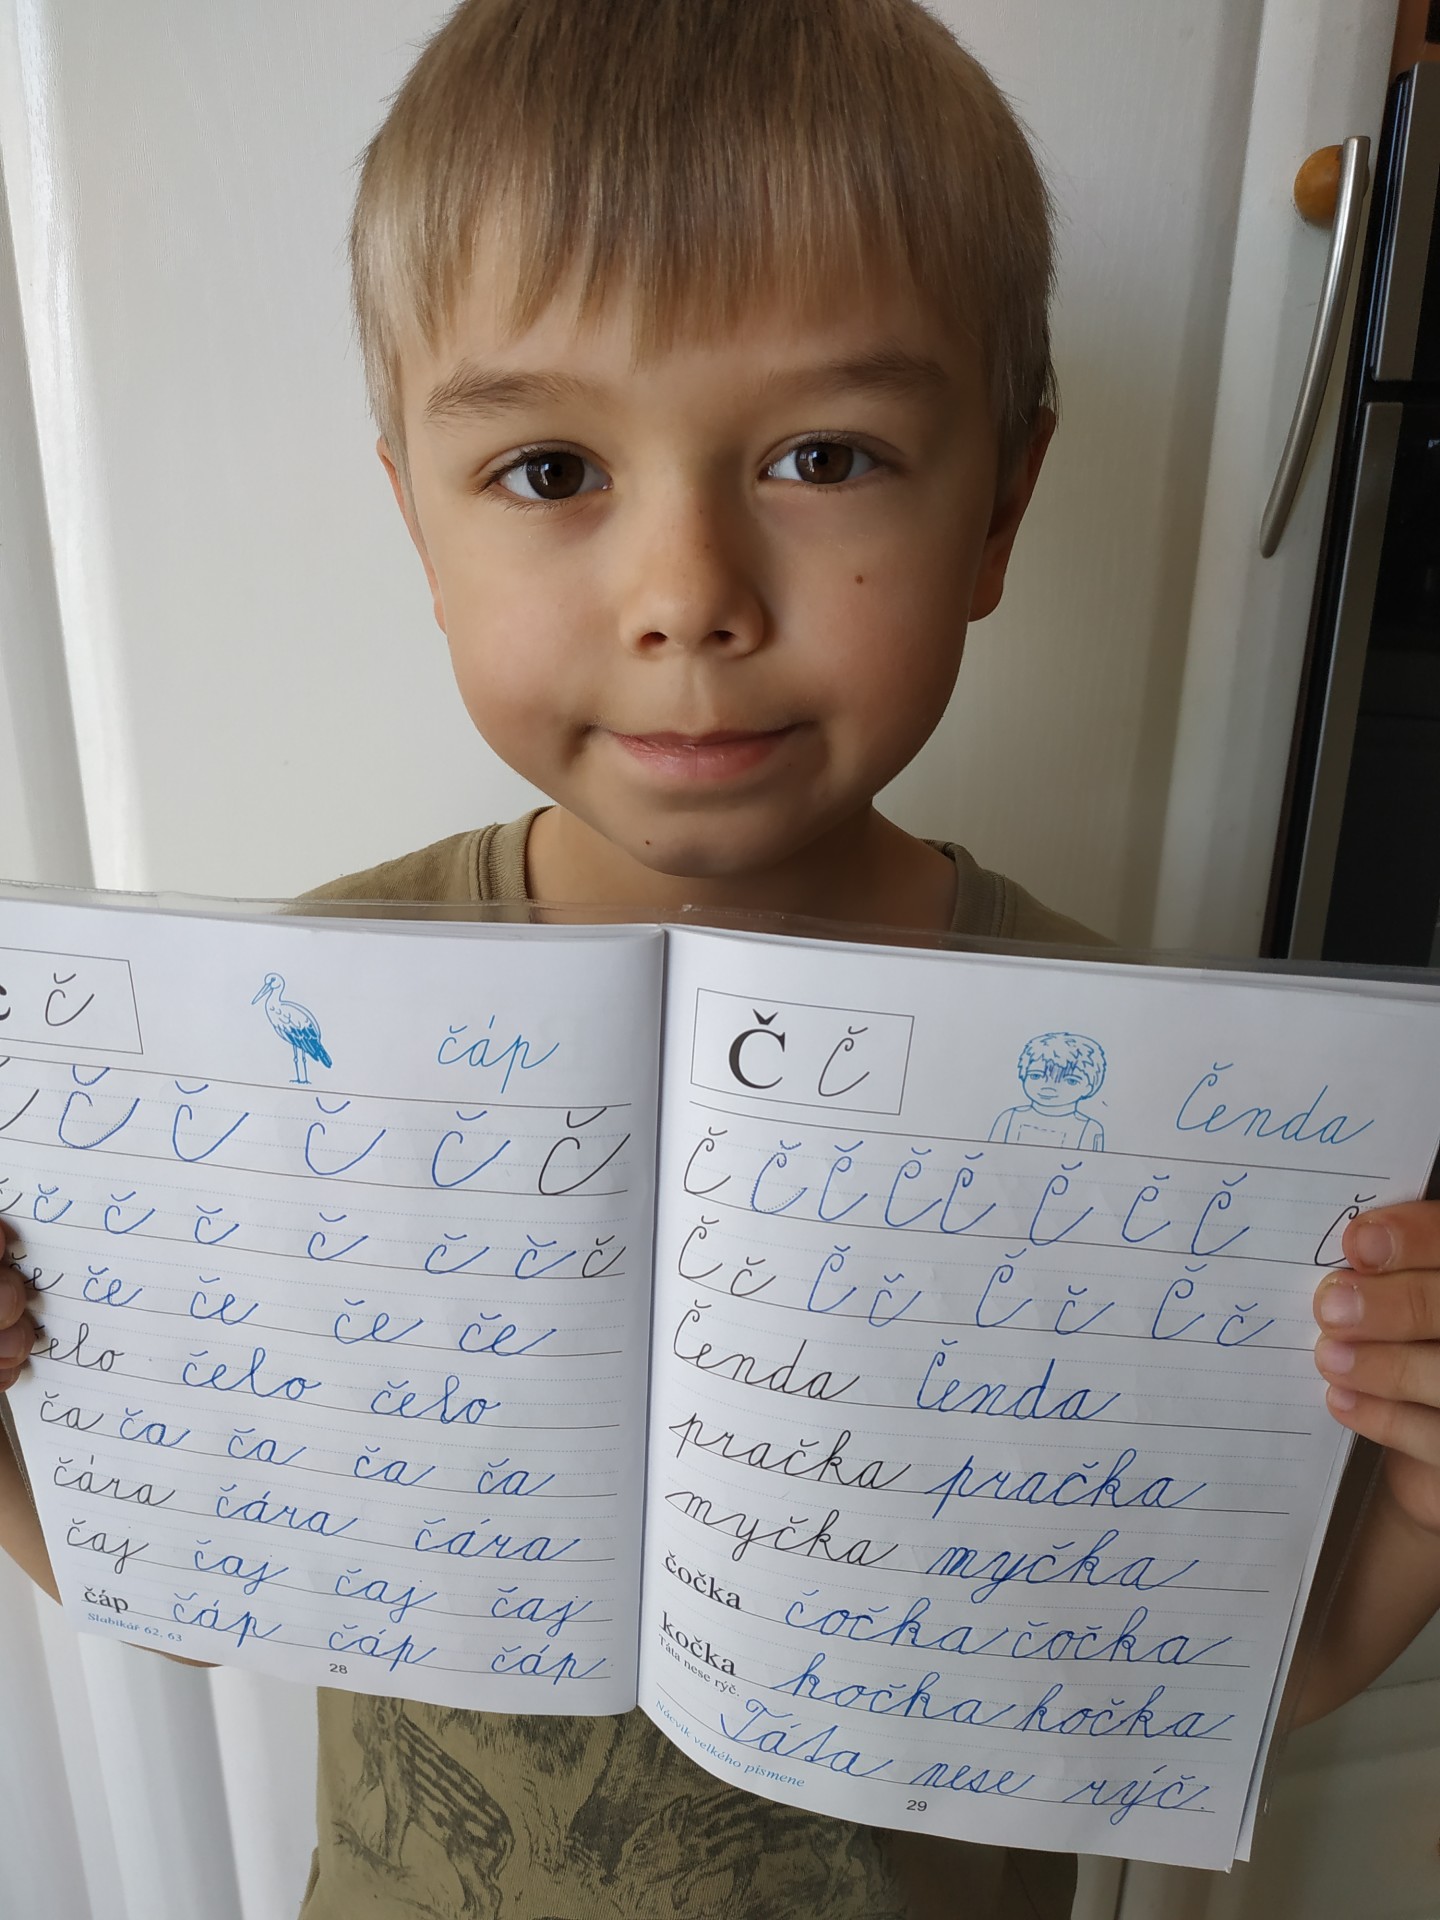 č
čáp
Č Č Č Č Č
č č č č č č č
če če če če če
čelo čelo čelo
ča ča ča ča ča
čára čára čára
čaj čaj čaj čaj
čáp čáp čáp čáp
Slabikář 62, 63
28
Č Č
Čenda
Č Č Č Č Č Č Č Č Č
Č č Č č Č č Č č
Čenda Čenda
pračka pračka
myčka myčka
čočka čočka čočka
kočka kočka kočka
Táta nese rýč.
Táta nese rýč.
Nácvik velkého písmene
29